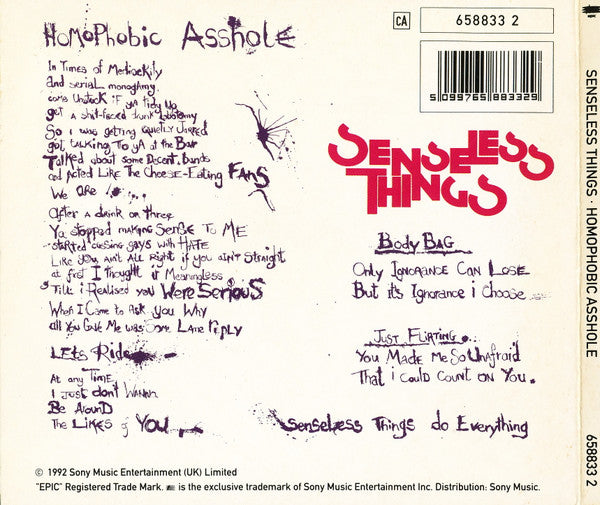 Homophobic Asshole
In Times of Mediockity
and serial monoghmy
coms Unstuck if ya tidy up
get a shit-faced drunk lobotomy
So i was getting quietly Jarred
got talking to ya at the Bar
Talked about some Decent bands
and Acted Like The Cheese-Eating FANS
We are !...
After a drink or three
Ya stopped making SENSE To ME
started cursing gays with HATE
Like you Ain't All Right if you ain't Straight
at first I thought it Meaningless
Till i Realised you Were Serious
When I Came to Ask you Why
all You Gave Me was Some Lame Reply
Lets Ride
At any TIME
I Just don't Wanna
Be Around
The Likes of You...
CA
658833 2
5 099765 883329
SENSELESS
THINGS
Body Bag
Only Ignorance Can Lose
But it's Ignorance i Choose
Just Flirting...
You Made Me So Unafraid
That i Could Count on You.
Senseless Things do Everything
© 1992 Sony Music Entertainment (UK) Limited
"EPIC" Registered Trade Mark. is the exclusive trademark of Sony Music Entertainment Inc. Distribution: Sony Music.
SENSELESS THINGS · HOMOPHOBIC ASSHOLE
658833 2